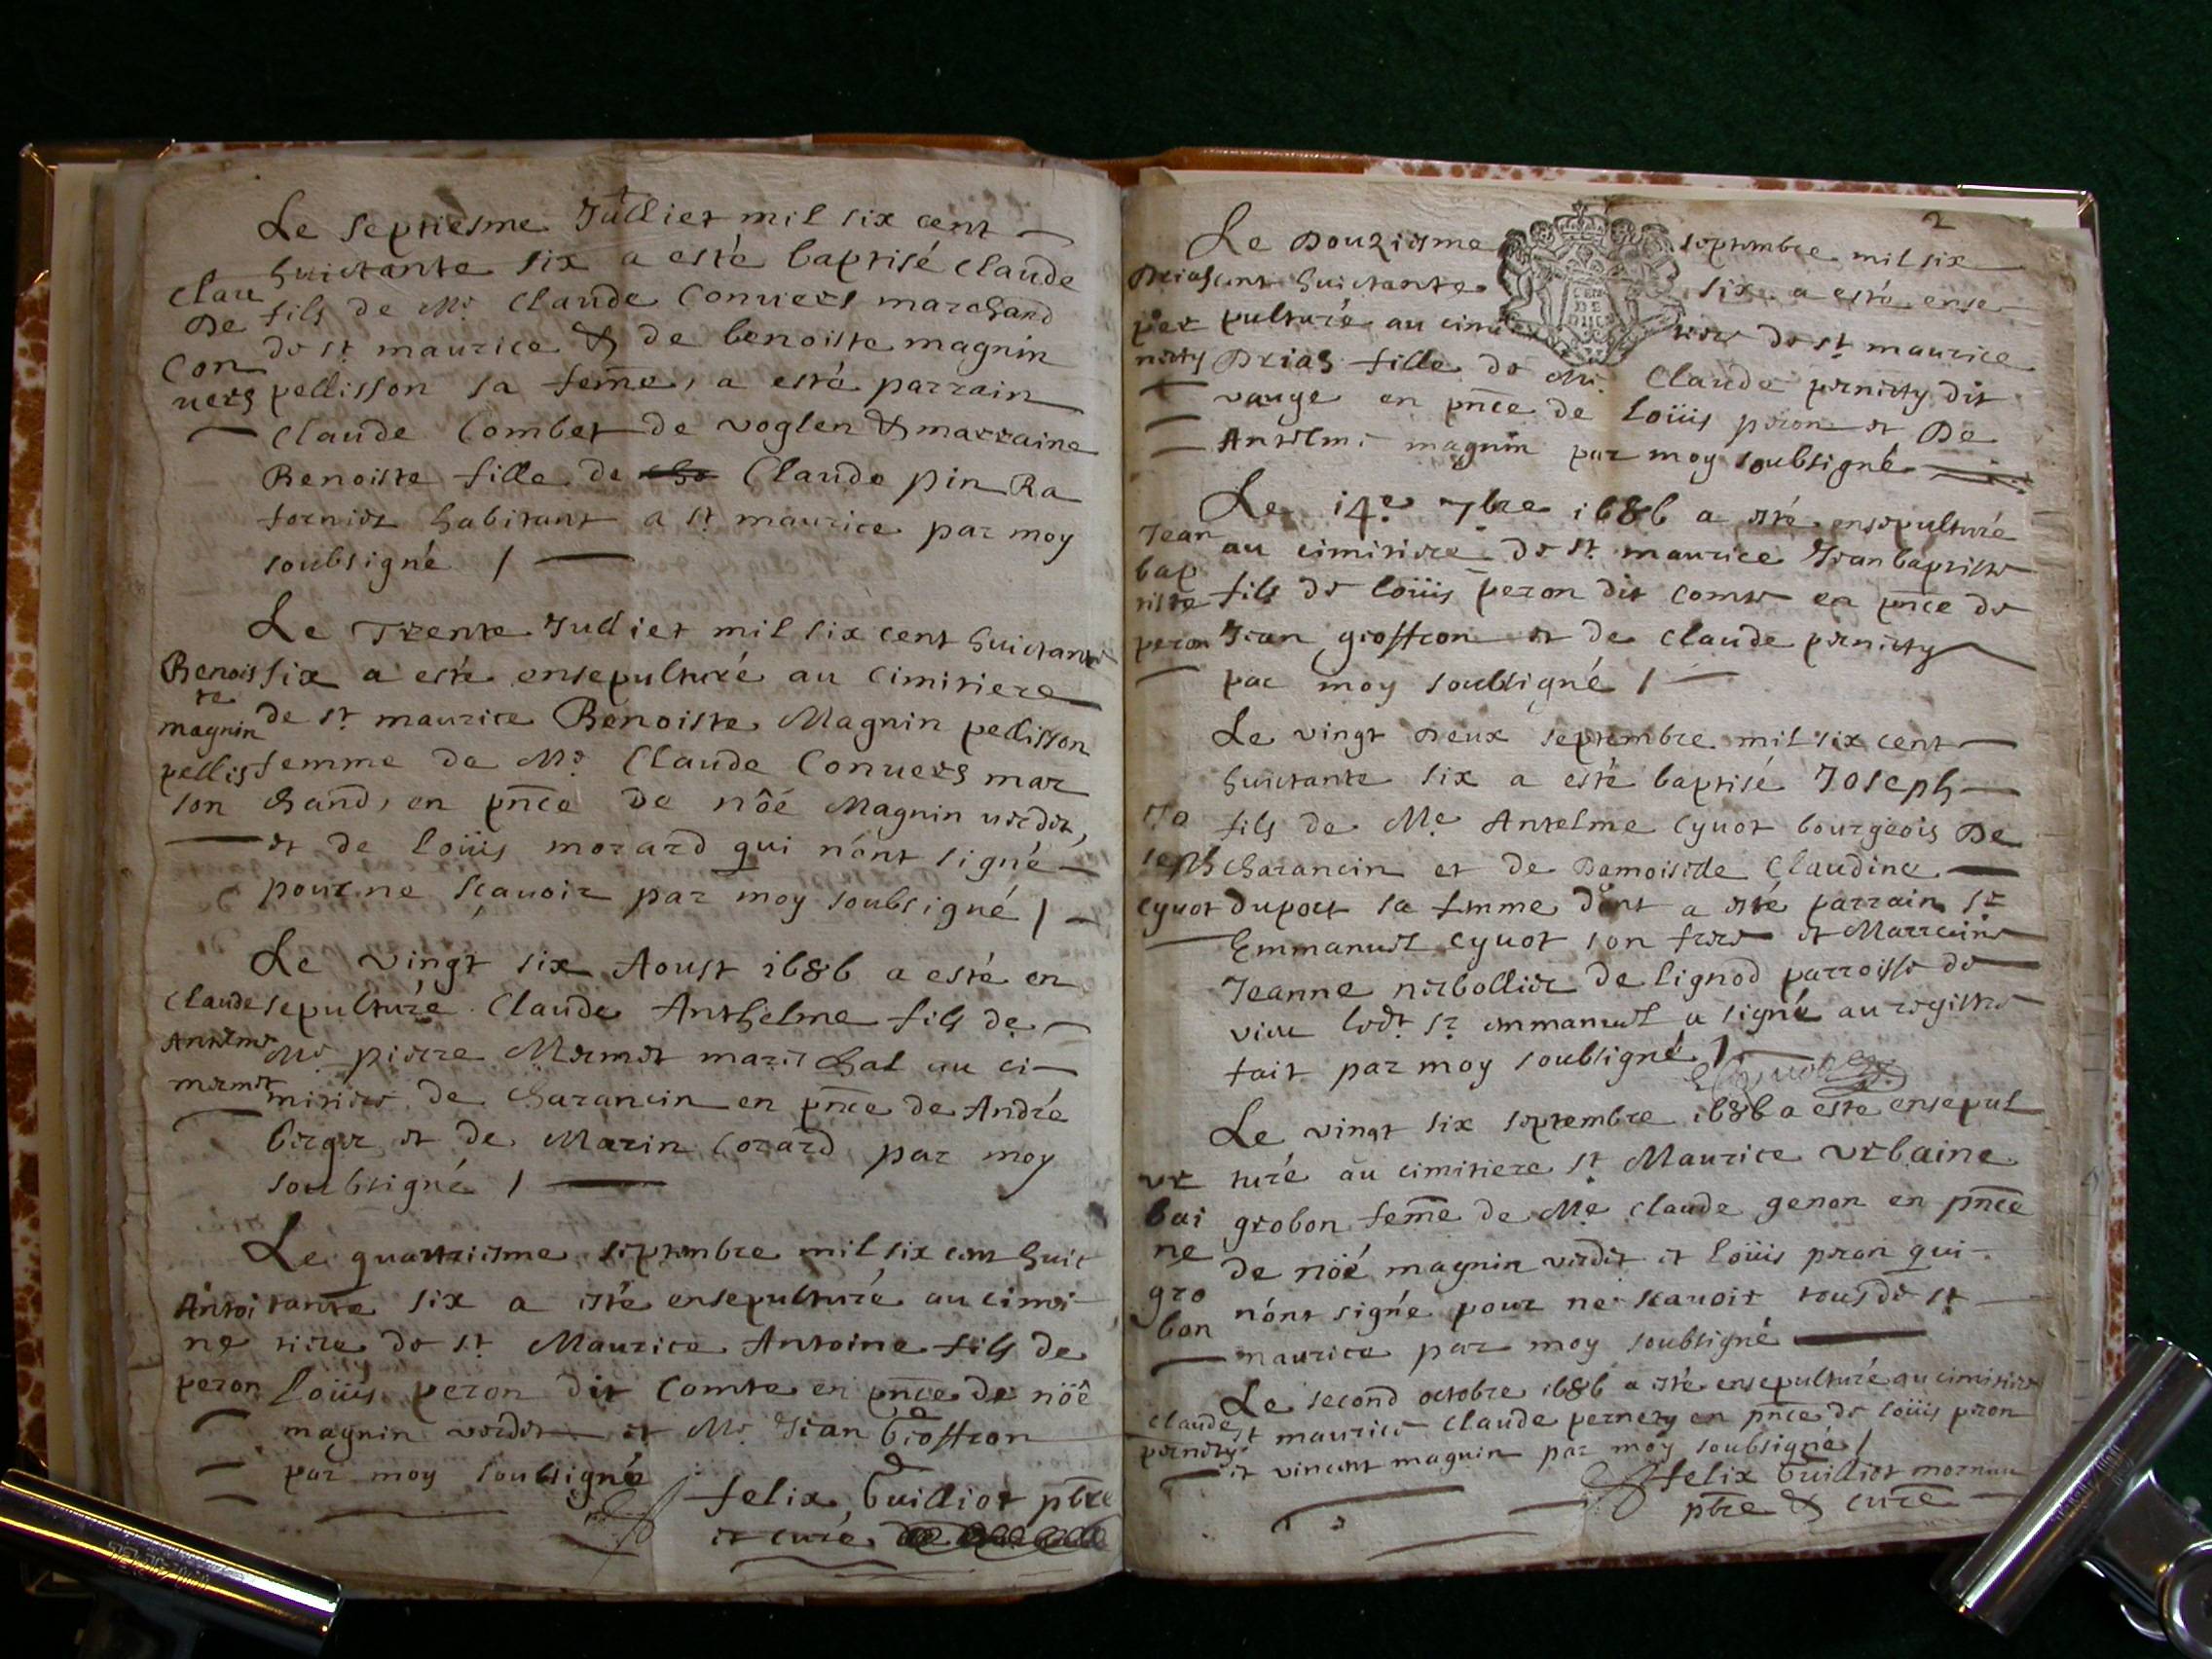 Le septiesme Julliet mil six cent
huictante six a esté baptisé Claude
Clau
De
Con
uers
fils de Mr Claude Conuers marchand
de st maurice & de benoiste magnin
pellisson sa fem̄e, a esté parrain
Claude Combet de voglen & marraine
Benoiste fille de Claude pin Ra
fornier habitant a st maurice par moy
soubsigné /
Le Trente Julliet mil six cent huictante
Benois
te
magnin
pellis
son
six a esté ensepulturé au cimitiere
de st maurice Benoiste Magnin pellisson
femme de Mr Claude Conuers mar
chand, en pn̄ce de nôé Magnin uerdet,
et de loüis morard qui nónt signé
pour ne sçauoir par moy soubsigné /
Le vingt six Aoust 1686 a esté en
Claude
Antelme
mermet
sepulturé Claude Anthelme fils de
Mr pierre Mermet mareschal au ci
mitiere de charancin en pn̄ce de André
berger et de Marin Corard par moy
soubsigné /
Le quattriesme septembre mil six cent huic
Antoi
ne
peron
tante six a esté ensepulturé au cimi
tiere de st Maurice Antoine fils de
Loüis peron dit Comte en pn̄ce de nöê
magnin verdet et Mr Jean Geoffron
par moy soubsigné
felix Guilliot pbr̄e
et curé
2
Le Douziesme septembre mil six
Drias
per
nety
cent huictante six a esté ense
pulturé au cimitiere de st maurice
Drias fille de Mr Claude pernety dit
vauge en pn̄ce de loüis peron et De
Antelme magnin par moy soubsigné
Le 14e 7bre 1686 a esté ensepulturé
Jean
bap
tiste
peron
au cimitiere de st maurice Jean baptiste
fils de loüis peron dit comte en pn̄ce de
Jean geoffron et de claude pernety
par moy soubsigné /
Le vingt Deux septembre mil six cent
huictante six a esté baptisé Joseph
Jo
seph
cyuot
fils de Me Antelme Cyuot bourgeois De
charancin et de Damoiselle Claudine
duport sa femme dont a esté parrain sr
Emmanuel cyuot son frere et Marraine
Jeanne nerbollier de lignod parroisse de
vieu ledt sr emmanuel a signé au registre
fait par moy soubsigné /
Le vingt six septembre 1686 a esté ensepul
vr
bai
ne
gro
bon
turé au cimitiere st Maurice vrbaine
grobon fem̄e de Me claude genon en pn̄ce
de nöé magnin verdet et loüis peron qui
nónt signé pour ne scauoir tous de st
maurice par moy soubsigné
Le second octobre 1686 a esté ensepulturé au cimitiere
claude
pernety
st maurice claude pernety en pn̄ce de loüis peron
et vincent magnin par moy soubsigné /
felix Guilliot
pbr̄e & curé